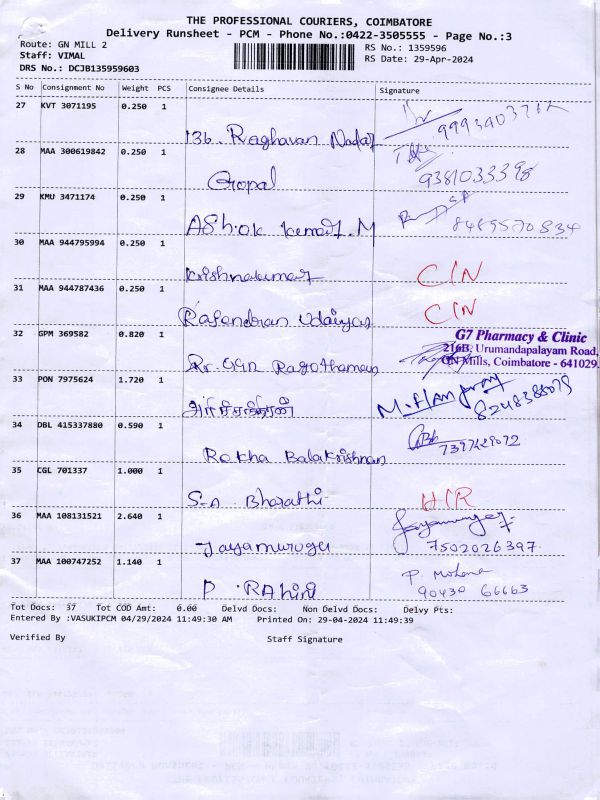 THE PROFESSIONAL COURIERS, COIMBATORE
Delivery Runsheet - PCM - Phone No.:0422-3505555 - Page No.:3
Route: GN MILL 2
RS No.: 1359596
Staff: VIMAL
RS Date: 29-Apr-2024
DRS No.: DCJB135959603
S No Consignment No Weight PCS Consignee Details Signature
27 KVT 3071195 0.250 1
136. Raghavan Nadar
28 MAA 300619842 0.250 1
Gopal 9381033398
29 KMU 3471174 0.250 1
AShok kumar.M
30 MAA 944795994 0.250 1
krishnakumar CIN
31 MAA 944787436 0.250 1
Rajendran Udaiyar CIN
32 GPM 369582 0.820 1
G7 Pharmacy & Clinic
216B, Urumandapalayam Road,
GN Mills, Coimbatore - 641029.
Ragothaman
33 PON 7975624 1.720 1
8248388079
34 DBL 415337880 0.590 1
Rekha Balakrishnan
35 CGL 701337 1.000 1
S.A Bharathi HIR
36 MAA 108131521 2.640 1
Jayamurugu 7502026397.
37 MAA 100747252 1.140 1
P. Mohana
P. RAhini 90430 66663
Tot Docs: 37 Tot COD Amt: 0.00 Delvd Docs: Non Delvd Docs: Delvy Pts:
Entered By :VASUKIPCM 04/29/2024 11:49:30 AM Printed On: 29-04-2024 11:49:39
Verified By Staff Signature